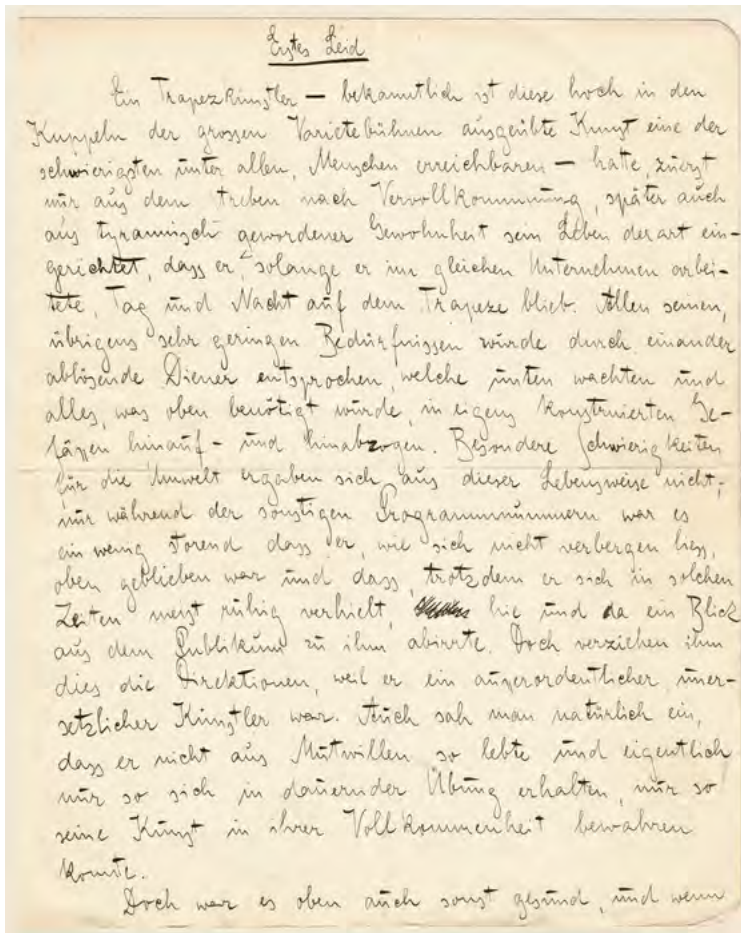 Erstes Leid
Ein Trapezkünstler — bekanntlich ist diese hoch in den
Kuppeln der grossen Varietebühnen ausgeübte Kunst eine der
schwierigsten unter allen, Menschen erreichbaren — hatte, zuerst
nur aus dem treben nach Vervollkommnung, später auch
aus tyrannisch gewordener Gewohnheit sein Leben derart ein-
gerichtet, dass er, solange er im gleichen Unternehmen arbei-
tete, Tag und Nacht auf dem Trapeze blieb. Allen seinen,
übrigens sehr geringen Bedürfnissen wurde durch einander
ablösende Diener entsprochen, welche unten wachten und
alles, was oben benötigt wurde, in eigens konstruierten Ge-
fässen hinauf- und hinabzogen. Besondere Schwierigkeiten
für die Umwelt ergaben sich aus dieser Lebensweise nicht;
nur während der sonstigen Programmnummern war es
ein wenig störend dass er, wie sich nicht verbergen liess,
oben geblieben war und dass, trotzdem er sich in solchen
Zeiten meist ruhig verhielt, hie und da ein Blick
aus dem Publikum zu ihm abirrte. Doch verziehen ihm
dies die Direktionen, weil er ein ausserordentlicher, uner-
setzlicher Künstler war. Auch sah man natürlich ein,
dass er nicht aus Mutwillen so lebte und eigentlich
nur so sich in dauernder Übung erhalten, nur so
seine Kunst in ihrer Vollkommenheit bewahren
konnte.
Doch war es oben auch sonst gesund, und wenn